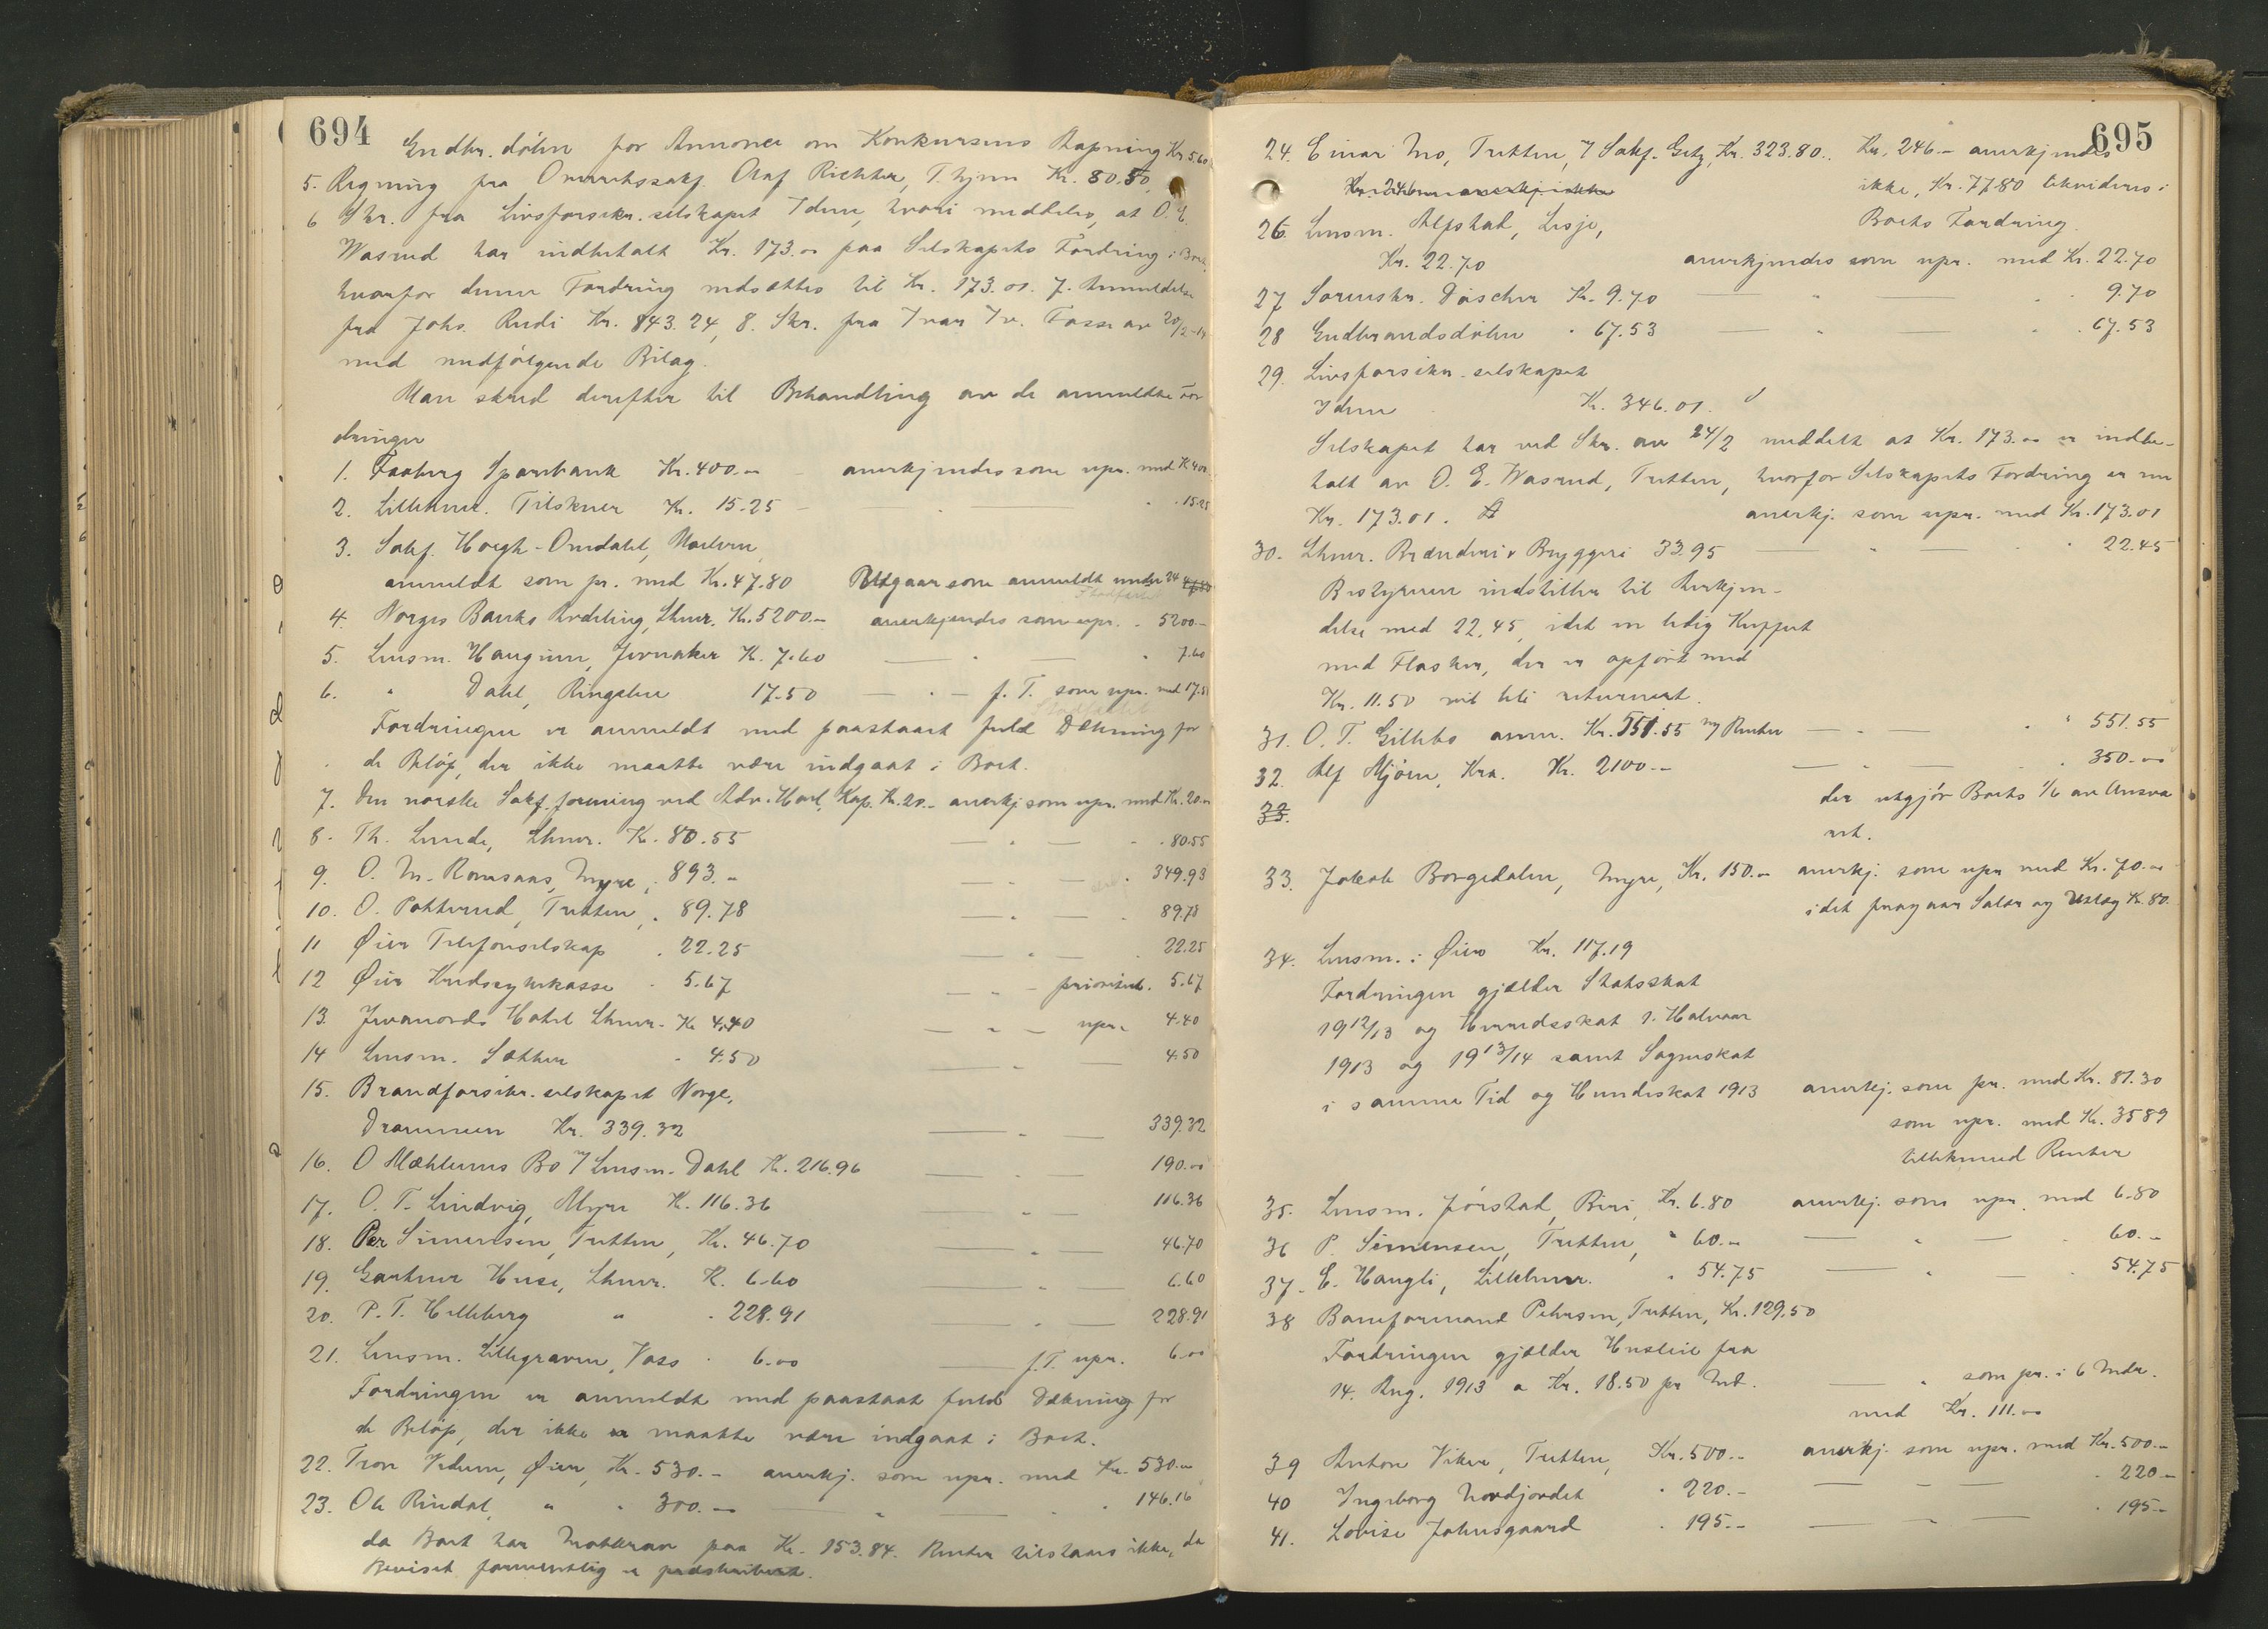 694
Gudbr. dølen for Annonce om Konkursens Aapning Kr 5.60
5. Regning fra Overretssakf. Olaf Richter, T. hjem Kr. 80.50,
6 Skr. fra Livsforsikr. selskapet Idun, hvori meddeles, at O. E.
Wasrud har indbetalt Kr. 173.00 paa Selskapets Fordring i Boet,
hvorfor denne Fordring nedsættes til Kr. 173.01. 7. Anmeldelse
fra Johs. Rudi Kr. 843.24, 8. Skr. fra Ivar Iv. Fosse av 20/2-14
med medfølgende Bilag.
Man skred derefter til Behandling av de anmeldte For
dringer
1. Faaberg Sparebank Kr. 400.00 anerkjendes som upr. med K 400
2. Lilleham. Tilskuer Kr. 15.25 — " — " . 15.25
3. Sakf. Høegh-Omdahl, Maelum
anmeldt som pr. med Kr. 47.80 Utgaar som anmeldt under 24
4. Norges Banks Avdeling, Lhmr. Kr. 5200.- anerkjendes som upr. . 5200-
5. Lensm. Haugern, Jevnaker K. 7.60 — " — " 7.60
6. " Dahl, Ringebu 17.50 — " — f. T. som upr. med 17.50
Fordringen er anmeldt med paastaat fuld Dækning for
de Beløp, der ikke maatte være indgaat i Boet.
7. Den norske Sakf. forening ved Adv. Harl. Kap. Kr. 20.- anerkj som upr. med Kr. 20.00
8. Th. Lunde, Lhmr. K. 80.55 — " — . 80.55
9. O. M. Romsaas, Myre, . 893.- — " — . 349.93
10. O. Potterud, Tretten, . 89.78 — " — . 89.78
11 Øier Telefonselskap . 22.25 — " — 22.25
12 Øier Kredssykekasse . 5.67 — " — prioritet. 5.67
13. Jevanords Hotel Lhmr. Kr 4.40 — " — upr. 4.40
14 Lensm. Sætter . 4.50 — " — 4.50
15. Brandforsikr. selskapet Norge,
Drammen Kr. 339.32 — " — 339.32
16. O Mæhlums Bo v/ Lensm. Dahl K. 216.96 — " — 190.00
17. O. T. Lindvig, Myre K. 116.36 — " — 116.36
18. Per Simensen, Tretten, Kr. 46.70 — " — 46.70
19. Gartner Huse, Lhmr. K. 6.60 — " — 6.60
20. P. T. Hilleberg " . 228.91 — " — 228.91
21. Lensm. Lillegraven, Voss . 6.00 — f. T. upr. 6.00
Fordringen er anmeldt med paastaat fuld Dækning for
de Beløp, der ikke maatte være indgaat i Boet.
22. Tron Vedum, Øier, Kr. 530.- anerkj. som upr. med Kr. 530.00
23. Ole Rindal, " . 300.- — " — . 146.16
da Boet har Motkrav paa Kr. 153.84. Renter tilstaaes ikke, da
Beviset formentlig er præskribert.
695
24. Einar Mo, Tretten, v/ Sakf. Getz, Kr. 323.80.. Kr. 246.- anerkjendes
ikke, Kr. 77.80 likvideres i
Boets Fordring.
26. Lensm. Alfstad, Lesje,
Kr. 22.70 anerkjendes som upr. med Kr. 22.70
27 Sorenskr. Døscher Kr. 9.70 — " — . . 9.70
28 Gudbrandsdølen . 67.53 — " — . . 67.53
29. Livsforsikr. selskapet
Idun Kr. 346.01.
Selskapet har ved Skr. av 24/2 meddelt at Kr. 173.00 er indbe-
talt av O. E. Wasrud, Tretten, hvorfor Selskapets Fordring er nu
Kr. 173.01. anerkj. som upr. med Kr. 173.01
30. Lhmr. Brænderi & Bryggeri 33.95 — " — . " 22.45
Bestyreren indstiller til Anerkjen-
delse med 22.45, idet en ledig Kuffert
med Flasker, der er opført med
Kr. 11.50 vil bli returnert.
31. O. T. Gillebo anm. Kr. 551.55 m/ Renter — " — . " 551.55
32. Alf Mjøen, Kra. Kr. 2100.- — " — . . 350.00
der utgjør Boets 1/6 av Ansva
ret.
33.
33. Jakob Borgedalen, Myre, Kr. 150.00 anerkj. som upr med Kr. 70.00
idet fragaar Salær og Utlæg K. 80.
34. Lensm. i Øier Kr. 117.19
Fordringen gjælder Statsskat
1912/13 og Herredsskat 1. Halvaar
1913 og 1913/14 samt Sogneskat
i samme Tid og Hundeskat 1913 anerkj. som pr. med Kr. 81.30
som upr. med Kr. 35.89
tillikemed Renter
35. Lensm. Jørstad, Biri, Kr. 6.80 anerkj. som upr. med 6.80
36 P. Simensen, Tretten, " 60.- — " — . 60.-
37. E. Haugli, Lillehmr. . 54.75 — " — . 54.75
38 Baneformand Pettersen, Tretten, Kr. 129.50
Fordringen gjælder Husleie fra
14. Aug. 1913 a Kr. 18.50 pr Md. — " som pr. i 6 Mdr.
med Kr. 111.00
39 Anton Viker, Tretten, Kr. 500.- anerkj. som upr. med Kr. 500.-
40 Ingeborg Nordjordet . 220.- — " — . 220-
41. Lovise Johnsgaard . 195.- — " — . 195.-